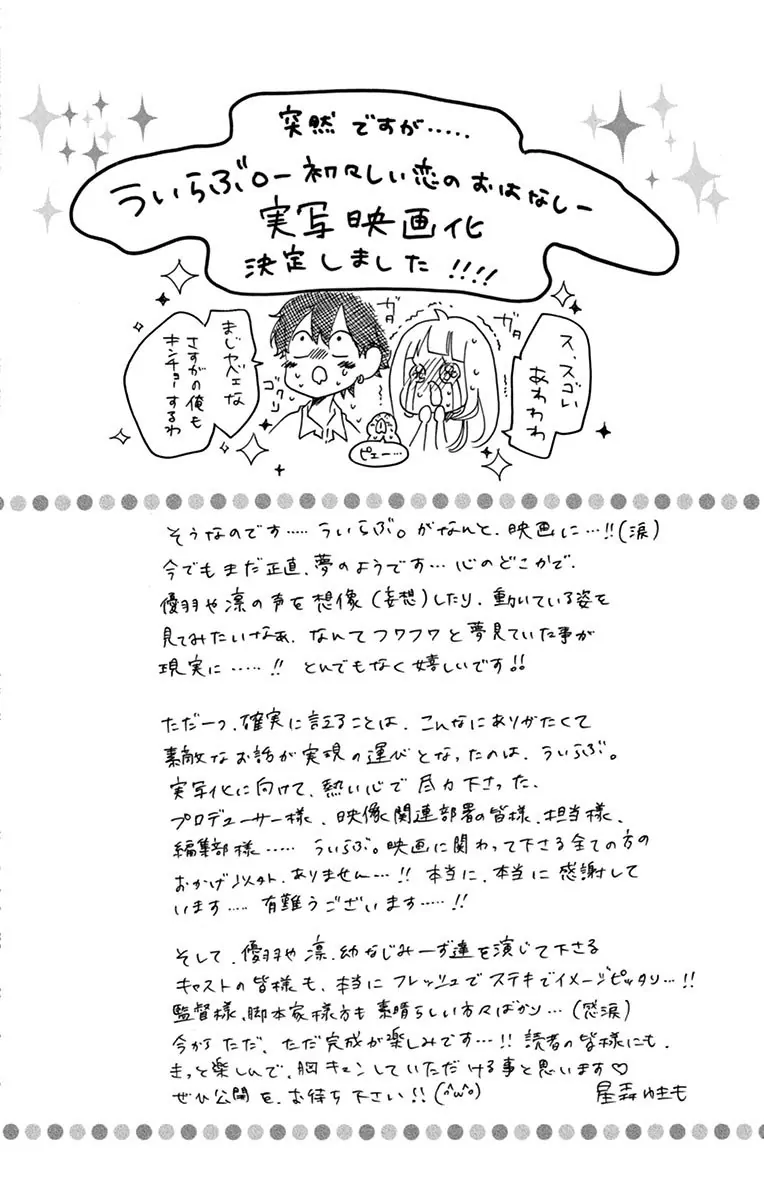 突然ですが.....
ういらぶ。ー初々しい恋のおはなしー
実写映画化
決定しました!!!!
ス、スゴい
あわわわ
ガタ
ガタ
まじヤベェな
さすがの俺も
キンチョーするわ
ゴクリ
ピュー...
そうなのです.....ういらぶ。がなんと、映画に...!!(涙)
今でもまだ正直、夢のようです...心のどこかで、
優羽や凛の声を想像(妄想)したり、動いている姿を
見てみたいなぁ、なんてフワフワと夢見ていた事が
現実に.....!!とんでもなく嬉しいです!!
ただ一つ、確実に言えることは、こんなにありがたくて
素敵なお話が実現の運びとなったのは、ういらぶ。
実写化に向けて、熱い心で尽力下さった、
プロデューサー様、映像関連部署の皆様、担当様、
編集部様.....ういらぶ。映画に関わって下さる全ての方の
おかげ以外、ありません...!!本当に、本当に感謝して
います....有難うございます.....!!
そして、優羽や凛、幼なじみーず達を演じて下さる
キャストの皆様も、本当にフレッシュでステキでイメージピッタリ...!!
監督様、脚本家様方も素晴らしい方々ばかり...(感涙)
今からただ、ただ完成が楽しみです...!!読者の皆様にも、
きっと楽しんで、胸キュンしていただける事と思います♡
ぜひ公開を、お待ち下さい!!(^ω^)
星森ゆきも